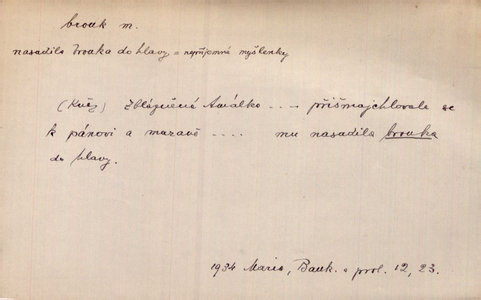 brouk m.
nasadila brouka do hlavy = nepříjemné myšlenky
(Kněz) Zblázněná Amálka .... přišmajchlovala se
k pánovi a mazavě .... mu nasadila brouka
do hlavy.
1934 Maria, Bauk. a prol. 12, 23.